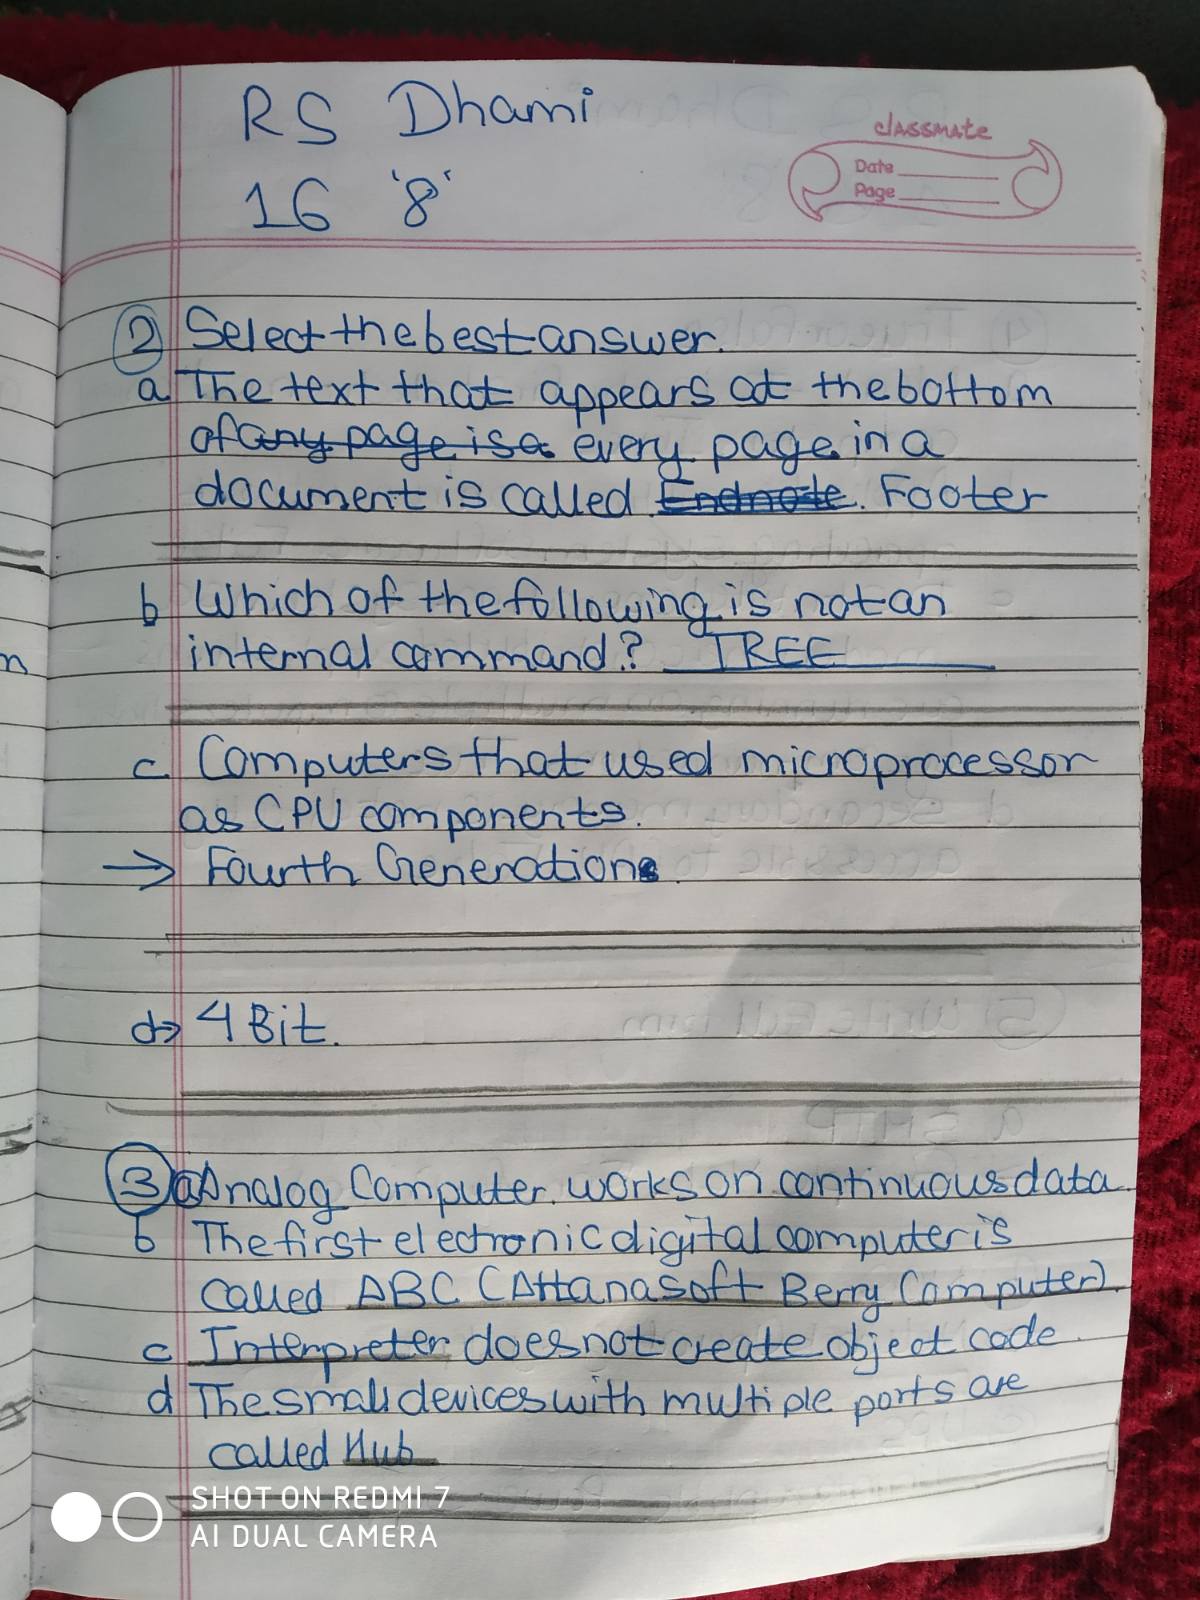 RS Dhami
16 '8'
classmate
Date
Page
2 Select the best answer.
a The text that appears at the bottom
of any page is a every page in a
document is called Endnote. Footer
b Which of the following is not an
internal command? TREE
n
c Computers that used microprocessor
as CPU components.
→ Fourth Generation
d→ 4 Bit.
3 a Analog Computer works on continuous data.
b The first electronic digital computer is
called ABC (Attanasoft Berry Computer)
c Interpreter does not create object code.
d The small devices with multiple ports are
called Hub
SHOT ON REDMI 7
AI DUAL CAMERA